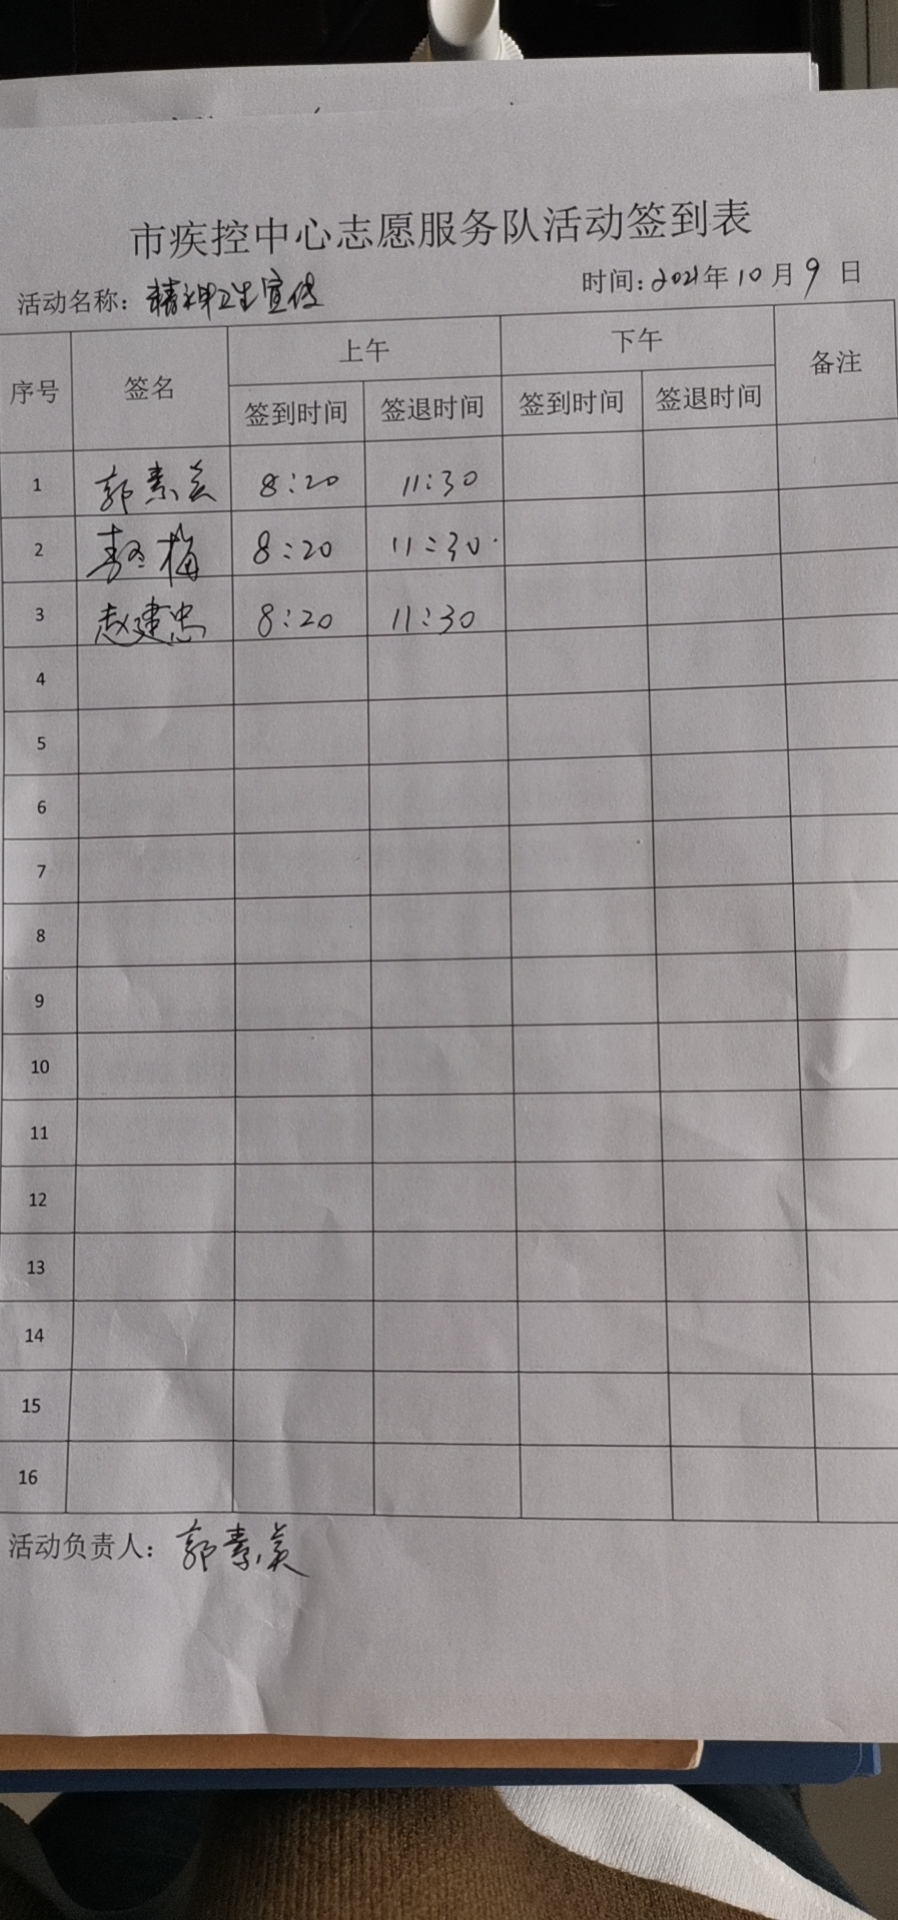 市疾控中心志愿服务队活动签到表
活动名称：精神卫生宣传 时间：2021年10月9日
序号 签名 上午 下午 备注
签到时间 签退时间 签到时间 签退时间
1 郭素美 8:20 11:30
2 梅 8:20 11:30
3 赵建忠 8:20 11:30
4
5
6
7
8
9
10
11
12
13
14
15
16
活动负责人：郭素美